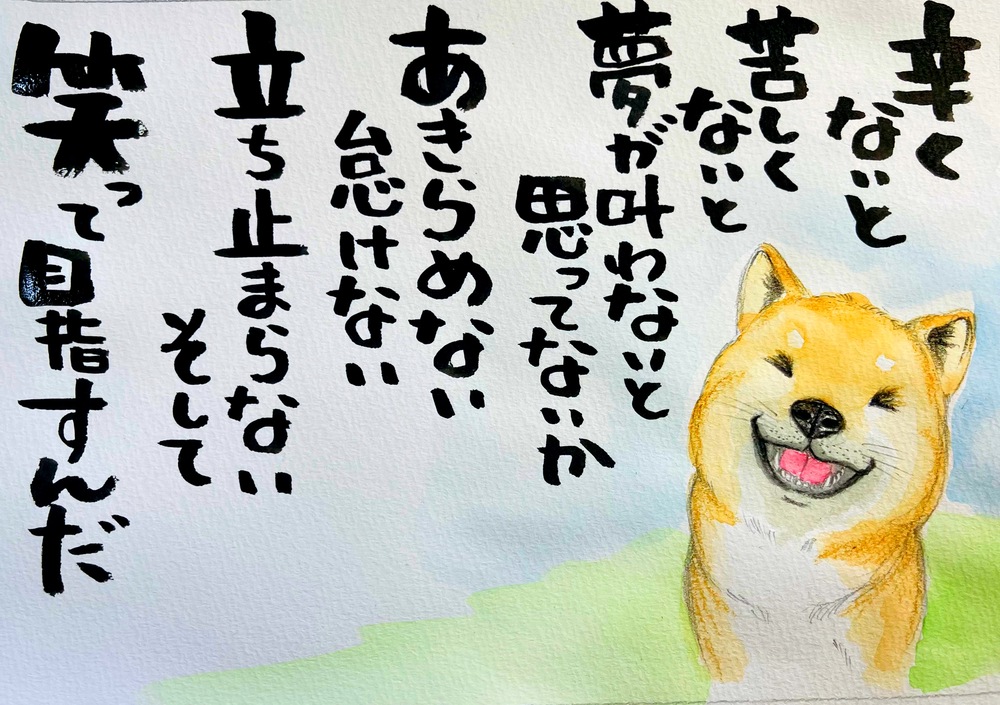 辛く
ないと
苦しく
ないと
夢が叶わないと
思ってないか
あきらめない
怠けない
立ち止まらない
そして
笑って目指すんだ